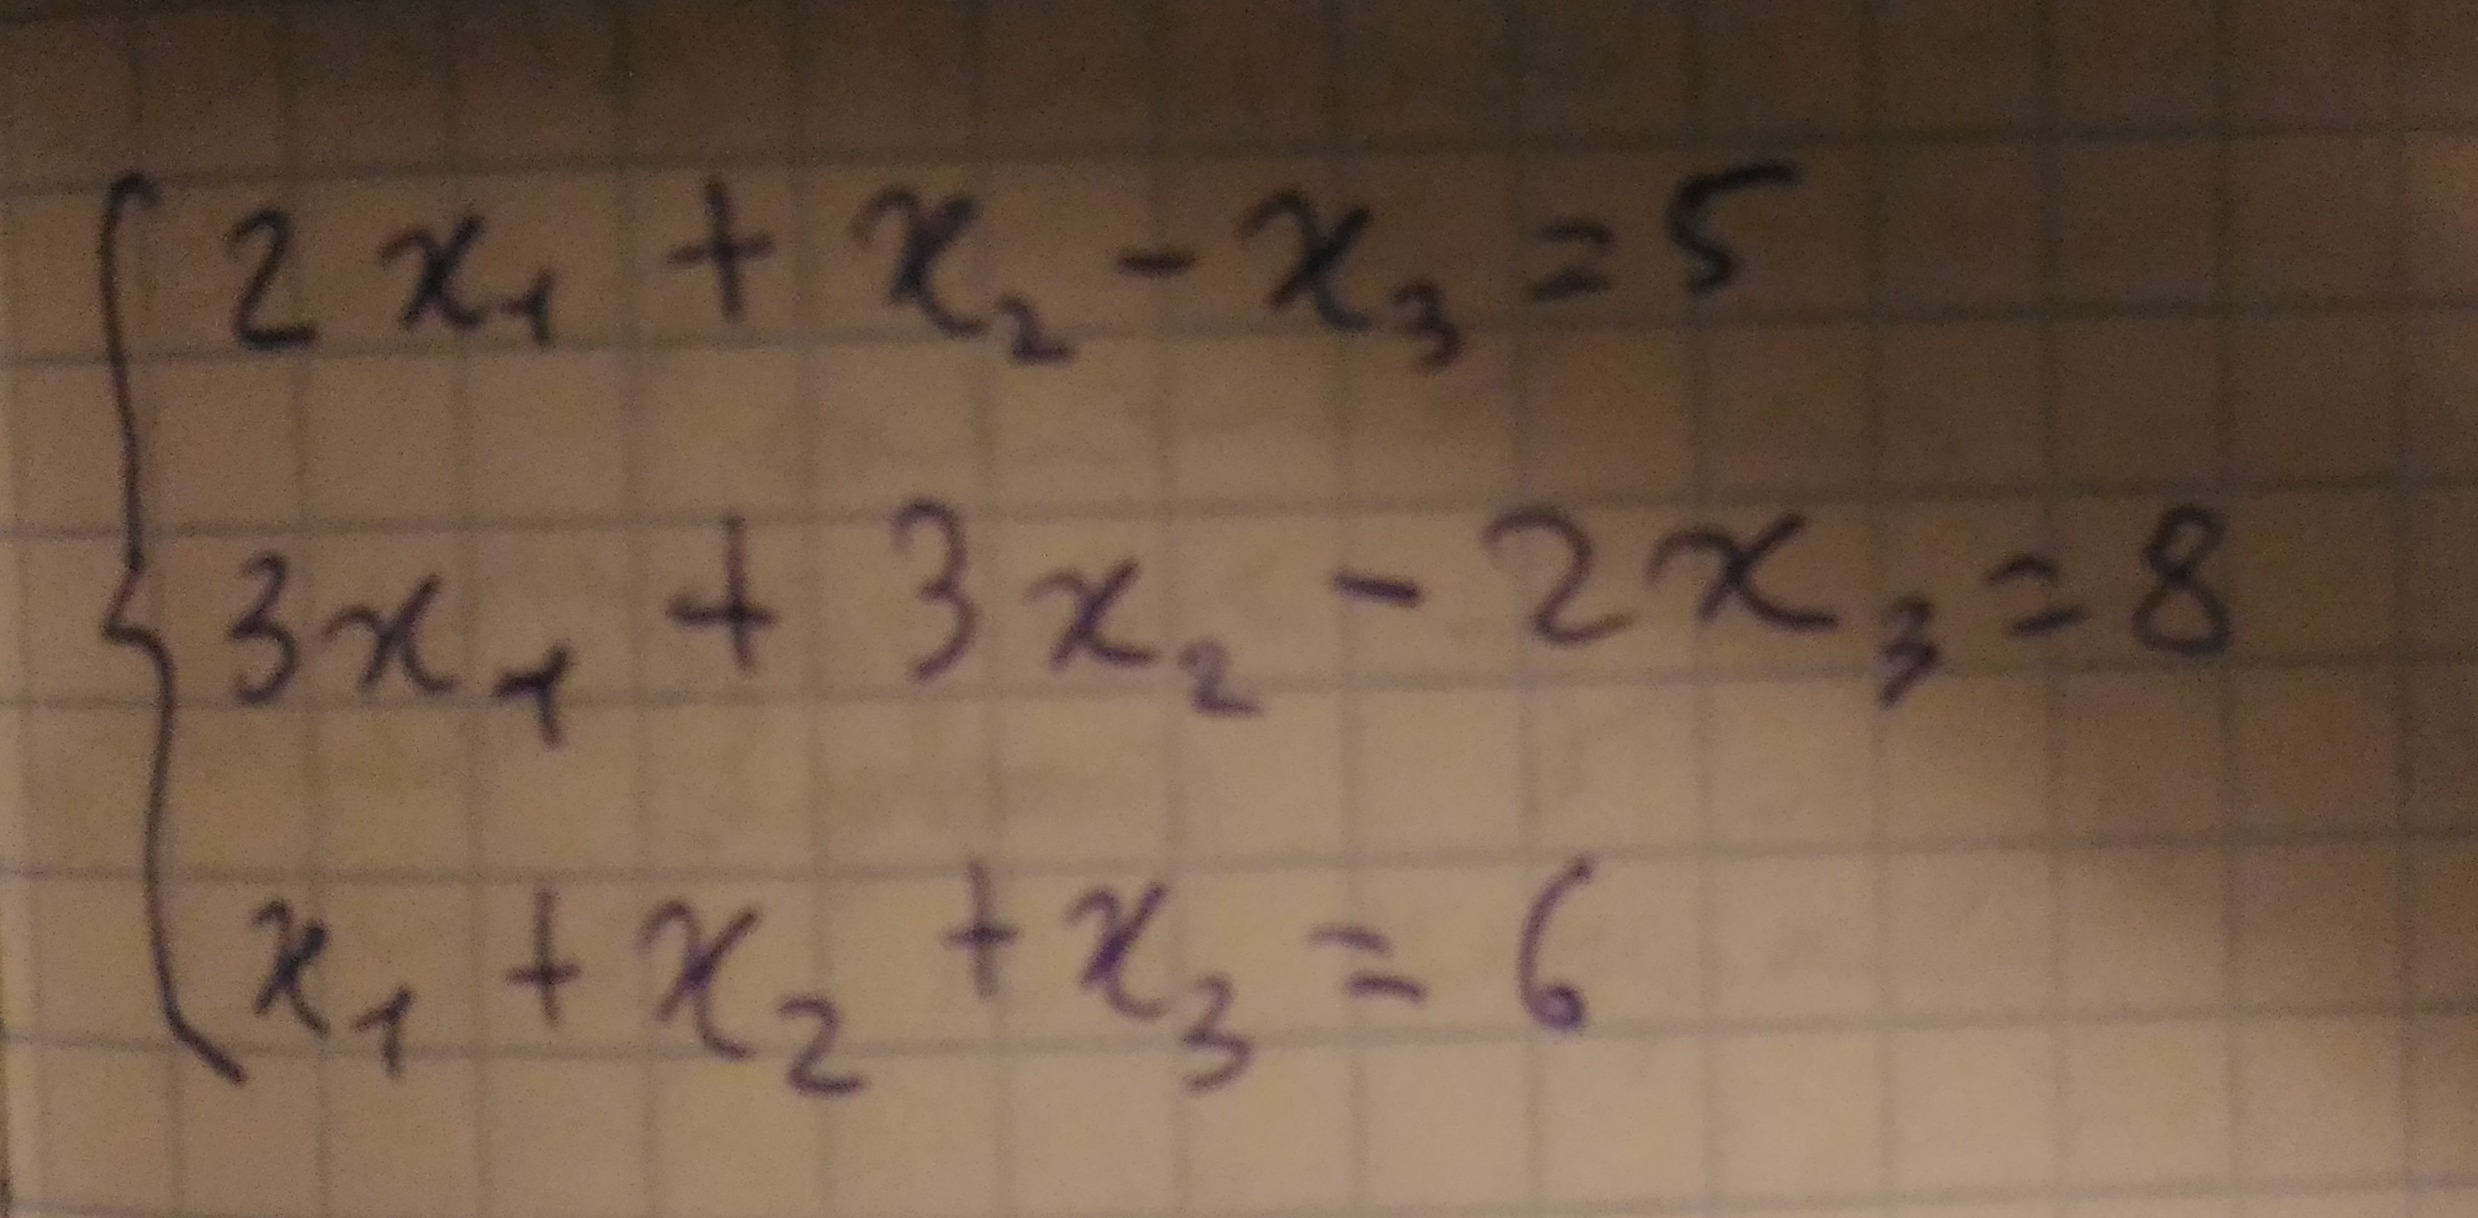 2x₁ + x₂ - x₃ = 5
3x₁ + 3x₂ - 2x₃ = 8
x₁ + x₂ + x₃ = 6